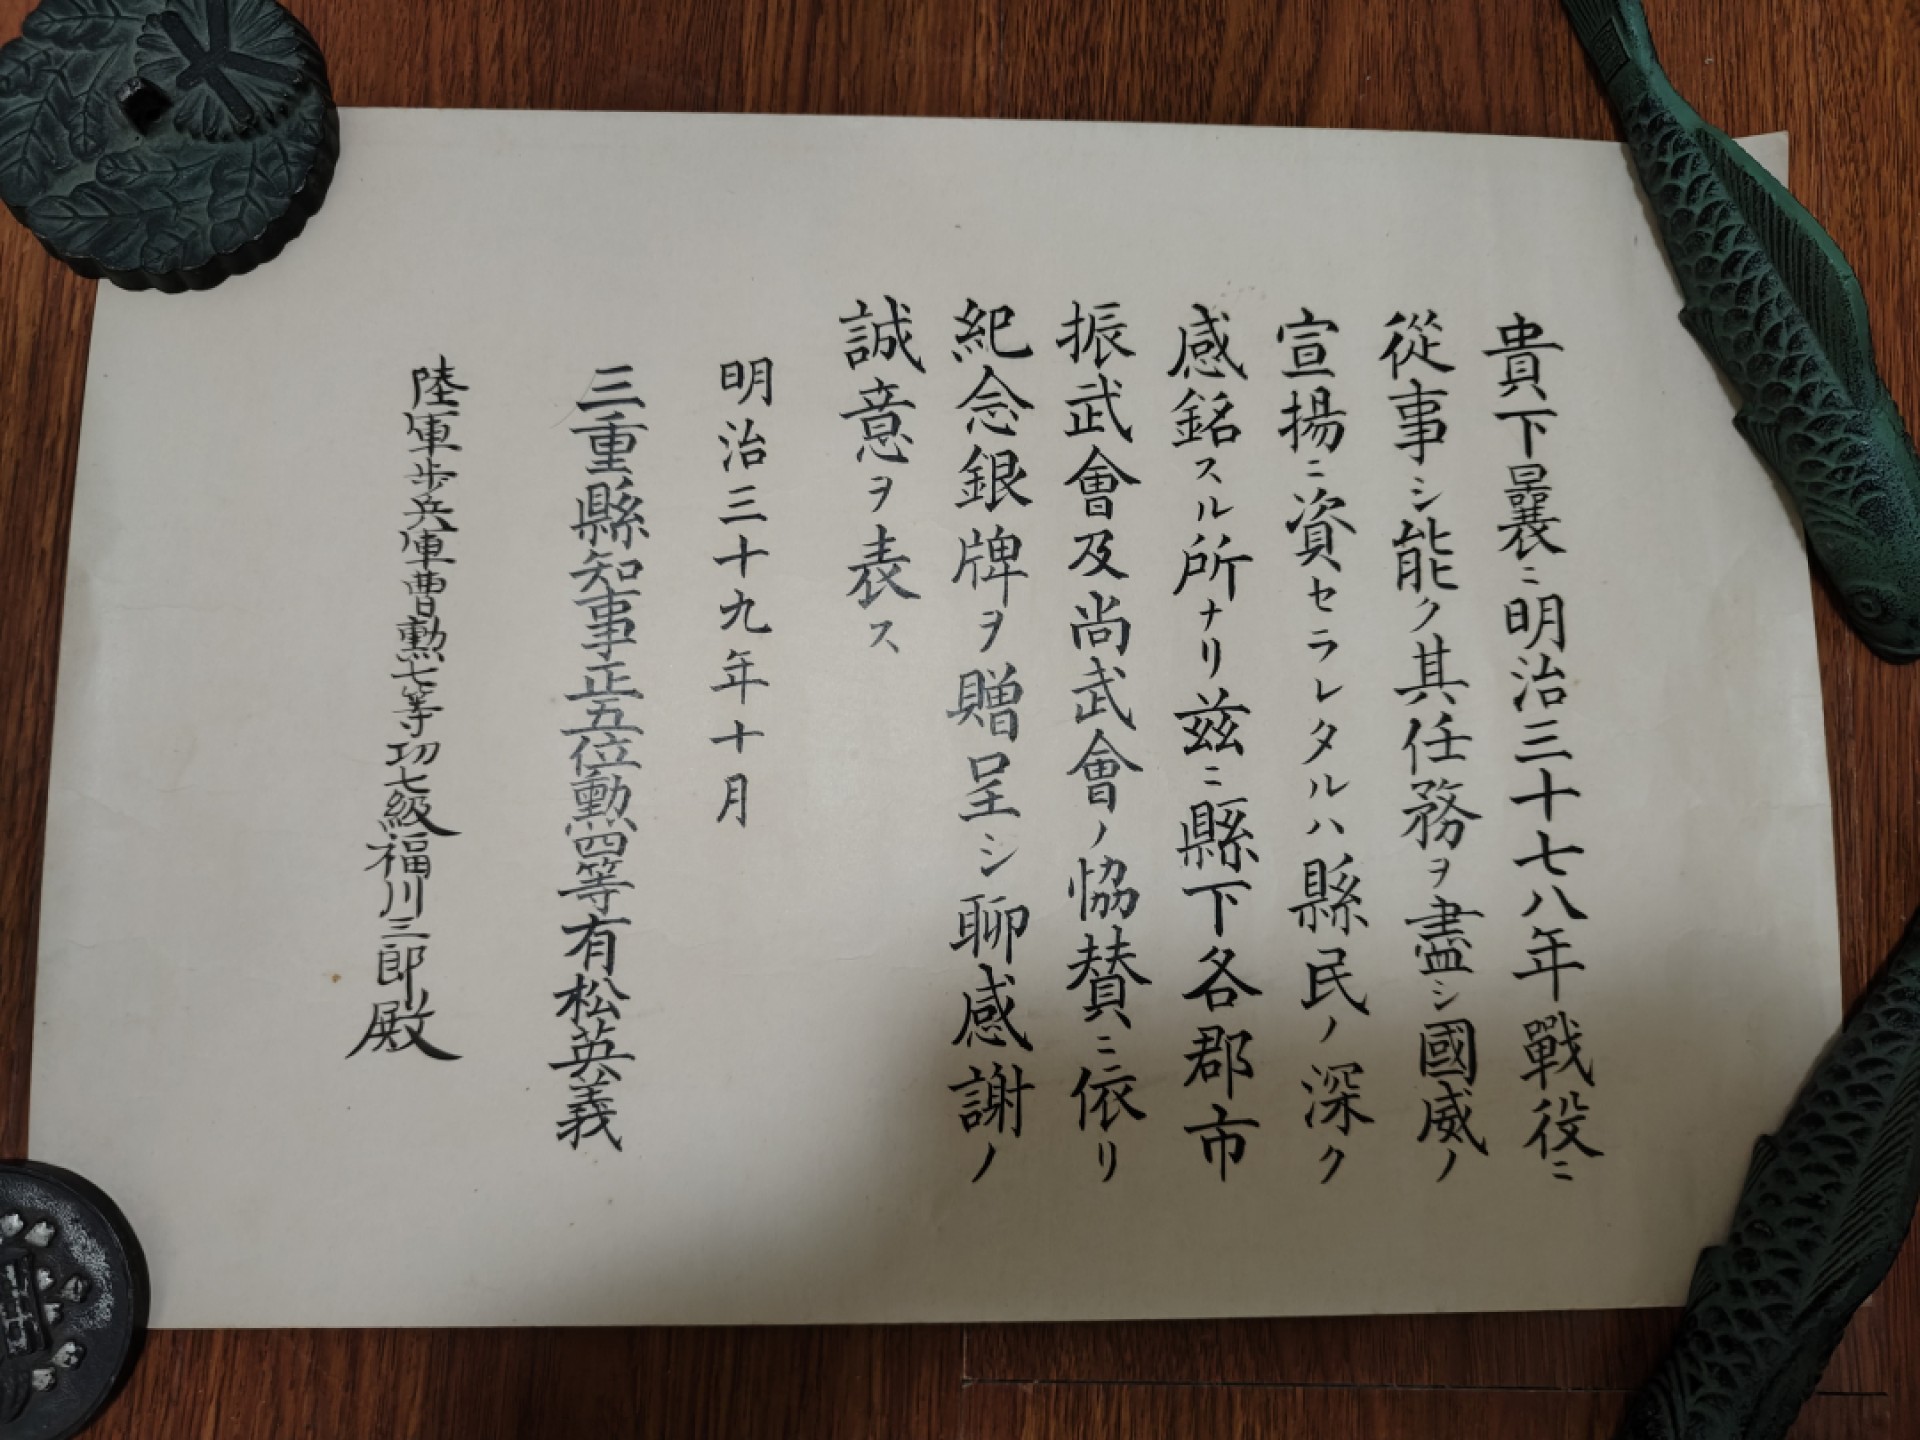 貴下曩ニ明治三十七八年戰役ニ
從事シ能ク其任務ヲ盡シ國威ノ
宣揚ニ資セラレタルハ縣民ノ深ク
感銘スル所ナリ茲ニ縣下各郡市
振武會及尚武會ノ協賛ニ依リ
紀念銀牌ヲ贈呈シ聊感謝ノ
誠意ヲ表ス
明治三十九年十月
三重縣知事正五位勳四等有松英義
陸軍歩兵軍曹勲七等功七級福川三郎殿